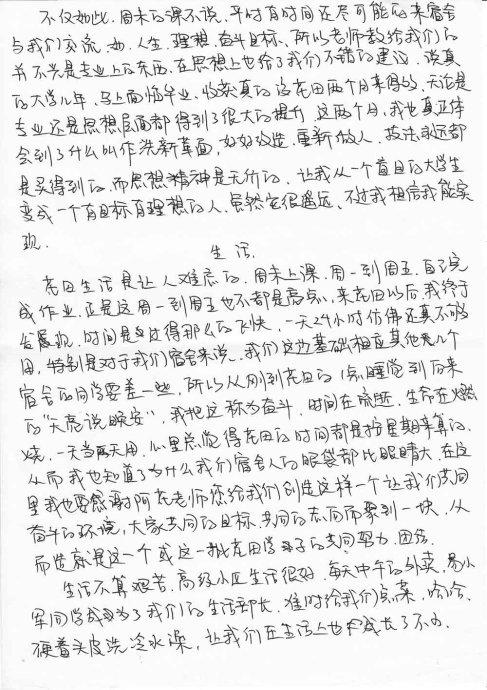 不仅如此，周末的课不说，平时有时间还尽可能的来宿舍
与我们交流，如，人生，理想，奋斗目标，所以老师教给我们的
并不只是专业上的东西，在思想上也给了我们不错的建议，说真
的大学几年，马上面临毕业，收获真的没花田两个月来得多，无论是
专业还是思想层面都得到了很大的提升，这两个月，我也真正体
会到了什么叫作洗新革面，好好改造，重新做人，技法永远都
是买得到的，而思想精神是无价的，让我从一个盲目的大学生
变成一个有目标有理想的人，虽然它很遥远，不过我相信我能实
现。
生活。
花田生活是让人难忘的，周末上课，周一到周五，自己完
成作业，正是这周一到周五也不都是高点，来花田以后，我终于
发现，时间是过得那么的飞快，一天24小时仿佛还真不够
用，特别是对于我们宿舍来说，我们这边基础相应其他几个
宿舍的同学要差一些，所以从刚到花田的1点睡觉到后来
的"天亮说晚安"，我把这称为奋斗，时间在流逝，生命在燃
烧，一天当两天用，心里总觉得花田的时间都是按星期来算的，
从而我也知道了为什么我们宿舍人的眼袋都比眼睛大，在这
里我也要感谢阿花老师您给我们创造这样一个让我们共同
奋斗的环境，大家共同的目标，共同的志向而聚到一块，从
而造就是这一个或这一批花田学子的共同努力，团结。
生活不算艰苦，高级小区生活很好，每天中午的外卖，易小
军同学成为了我们的生活部长，准时给我们点菜，哈哈，
硬着头皮洗冷水澡，让我们在生活上也成长了不少。